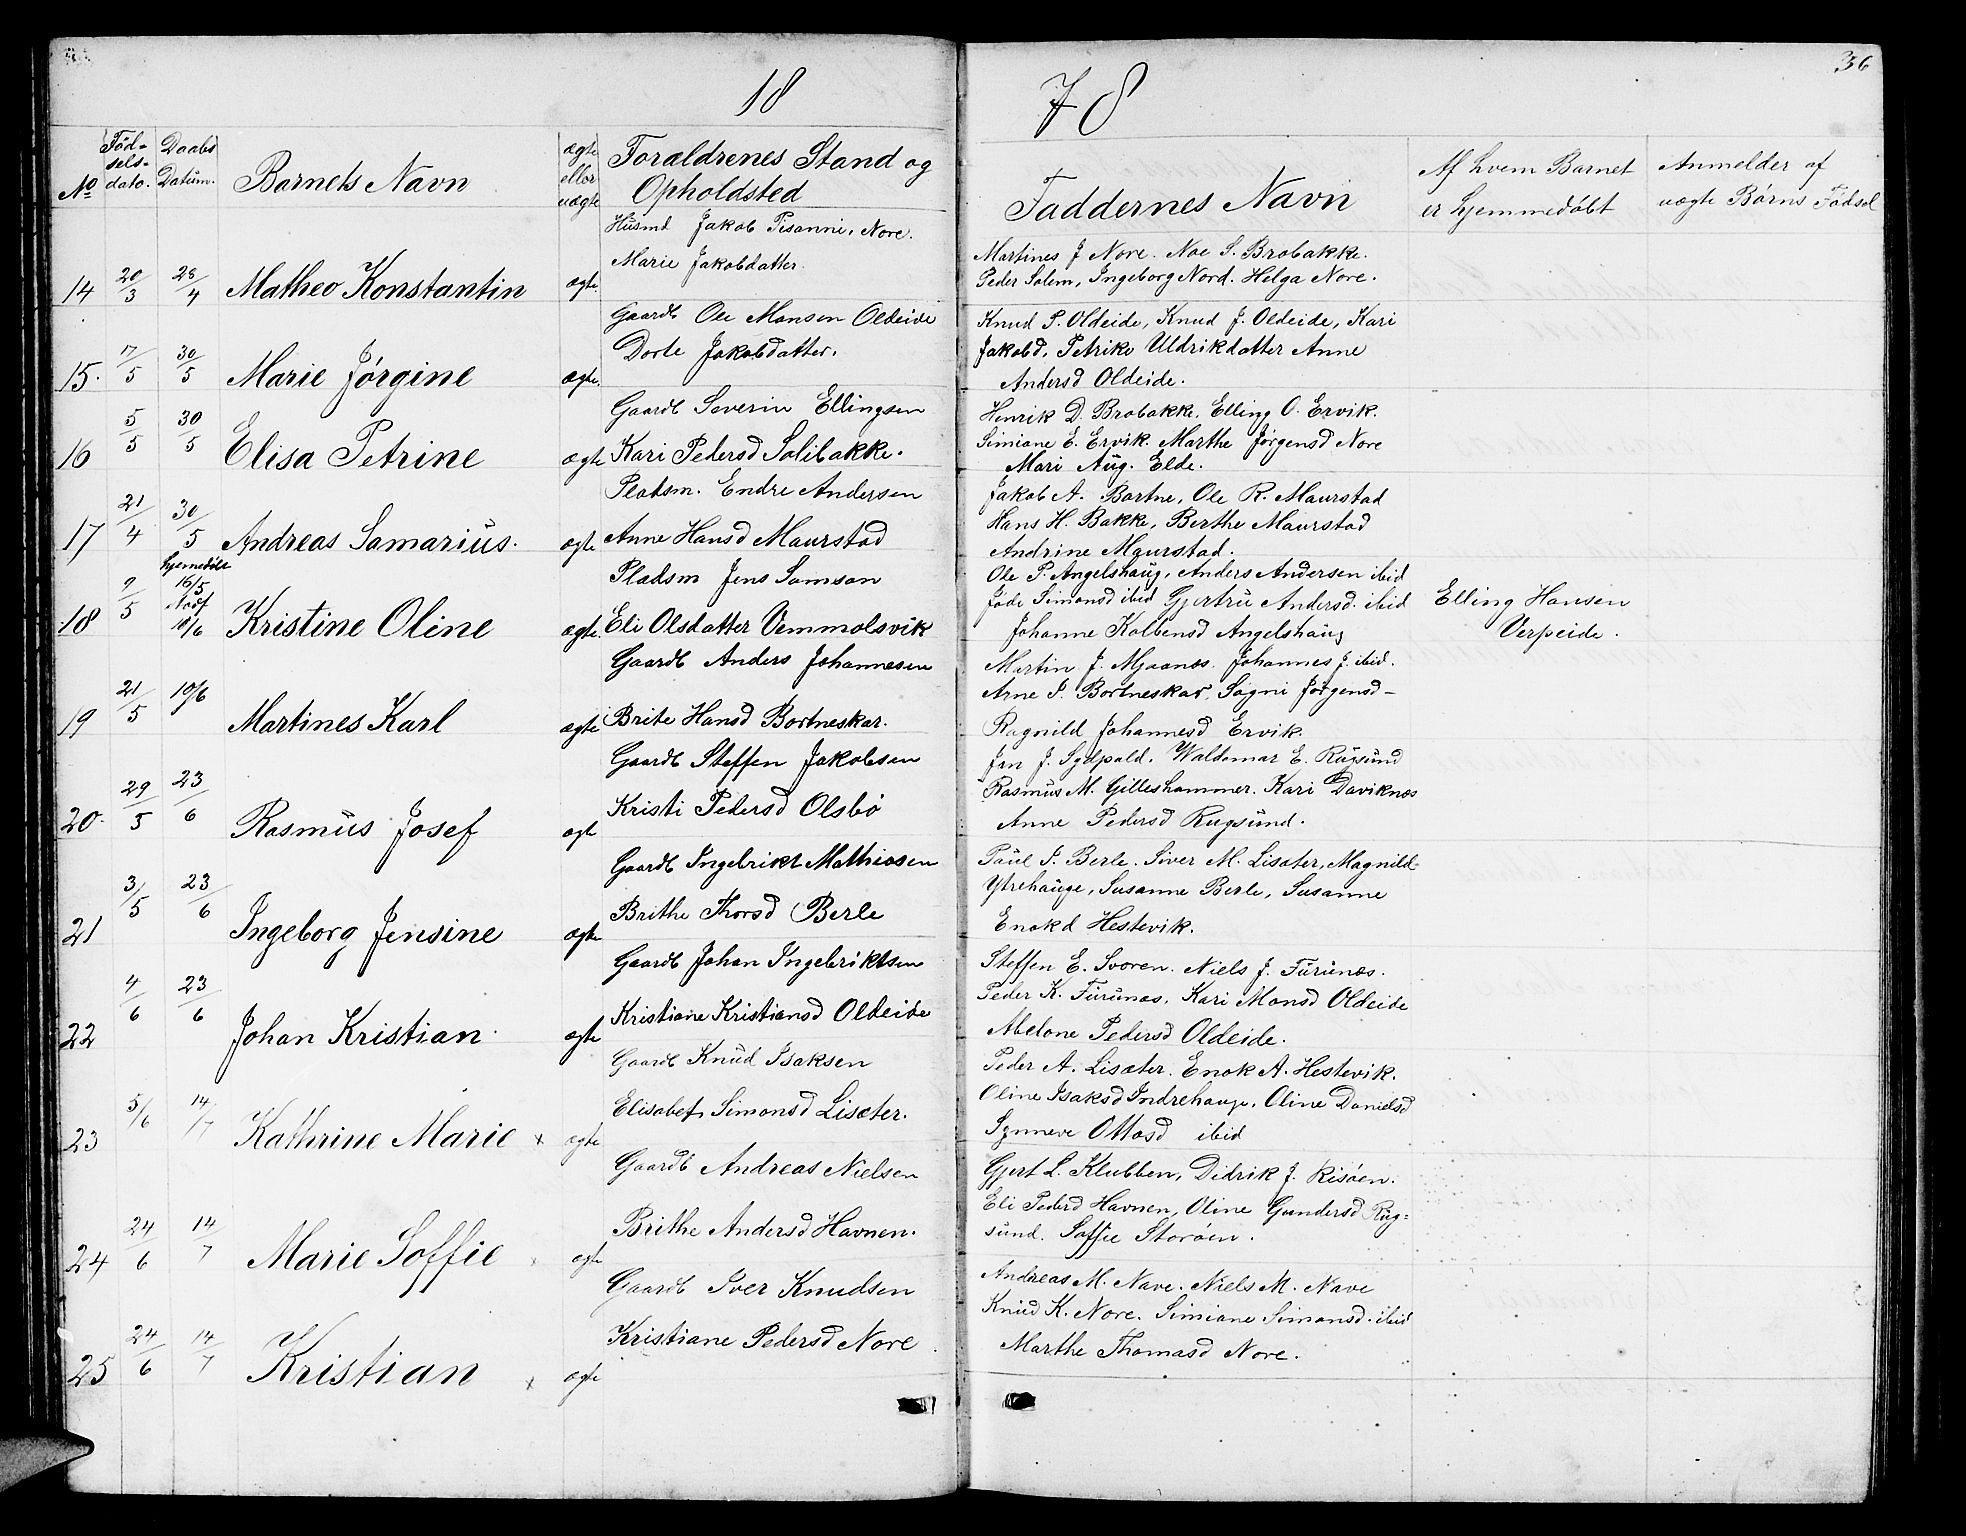 18
78
36
No
Fød-
sels-
dato.
Daabs
Datum.
Barnets Navn
ægte
eller
uægte
Forældrenes Stand og
Opholdsted
Faddernes Navn
Af hvem Barnet
er hjemmedøbt
Anmelder af
uægte Børns Fødsel
14 20/3 28/4 Matheo Konstantin ægte
Husmd Jakob Pisanni, Nore.
Marie Jakobdatter.
Martines J Nore. Noe S. Brobakke.
Peder Solem, Ingeborg Nord. Helga Nore.
15. 17/5 30/5 Marie Jørgine ægte.
Gaardb Ole Monsen Oldeide
Dorte Jakobdatter.
Knud P. Oldeide, Knud J. Oldeide, Kari
Jakobd. Petrike Uldrikdatter Anne
Andersd Oldeide.
16 5/5 30/5 Elisa Petrine ægte
Gaardb Severin Ellingsen
Kari Pedersd Solibakke.
Henrik D. Brobakke, Elling O. Ervik.
Simiane E. Ervik. Marthe Jørgensd Nore
Mari Aug. Elde.
17 21/4 30/5 Andreas Samarius. ægte
Pladsm. Endre Andersen
Anne Hansd Maurstad
Jakob A. Bortne, Ole R. Maurstad
Hans H. Bakke, Berthe Maurstad
Andrine Maurstad.
18 9/5 hjemedøbt 16/5 Stadf 10/6 Kristine Oline ægte
Pladsm Jens Samson
Eli Olsdatter Vemmolsvik
Ole P. Angelshaug, Anders Andersen ibid
Simonsd ibid Gjertru Andersd. ibid
Johanne Kolbensd Angelshaug
Elling Hansen
Verpeide.
19 21/5 10/6 Martines Karl ægte
Gaardb Anders Johannesen
Brite Hansd Bortneskar.
Martin J. Mjaanes. Johannes J. ibid.
Arne I. Bortneskar, Søgni Jørgensd-
Ragnild Johannesd Ervik.
20. 29/5 23/6 Rasmus Josef ægte
Gaardb Steffen Jakobsen
Kristi Pedersd Olsbø
Jan J. Sydpold. Waldemar E. Rugsund
Rasmus M. Gilleshammer. Kari Daviknes
Anne Pedersd Rugsund.
21 3/5 23/6 Ingeborg Jensine ægte
Gaardb Ingebrikt Mathiasen
Brithe Thorsd Berle
Paul I. Berle. Siver M. Lisæter, Magnild-
Ytrehauge, Susanne Berle, Susanne
Enokd Hestevik.
22 4/6 23/6 Johan Kristian. ægte
Gaardb Johan Ingebriktsen
Kristiane Kristiansd Oldeide
Steffen E. Svoren. Niels J. Furunes.
Peder K. Furunes, Kari Monsd Oldeide
Abelone Pedersd Oldeide.
23 5/6 14/7 Kathrine Marie x ægte
Gaardb Knud Isaksen
Elisabet Simonsd Lisæter.
Peder A. Lisæter. Enok A. Hestevik.
Oline Isaksd Indrehauge. Oline Danielsd
Synneve Ottosd ibid
24 24/6 14/7 Marie Soffie x ægte
Gaardb Andreas Nielsen
Brithe Andersd Havnen.
Gjert L. Klubben, Didrik J. Risøen.
Eli Pedersd Havnen, Oline Gundersd Rug-
sund. Soffie Storøen.
25 24/6 14/7 Kristian x ægte
Gaardb Iver Knudsen
Kristiane Pedersd Nore
Andreas M. Nave. Niels M. Nave
Knud K. Nore. Simiane Simonsd. ibid
Marthe Thomasd Nore.